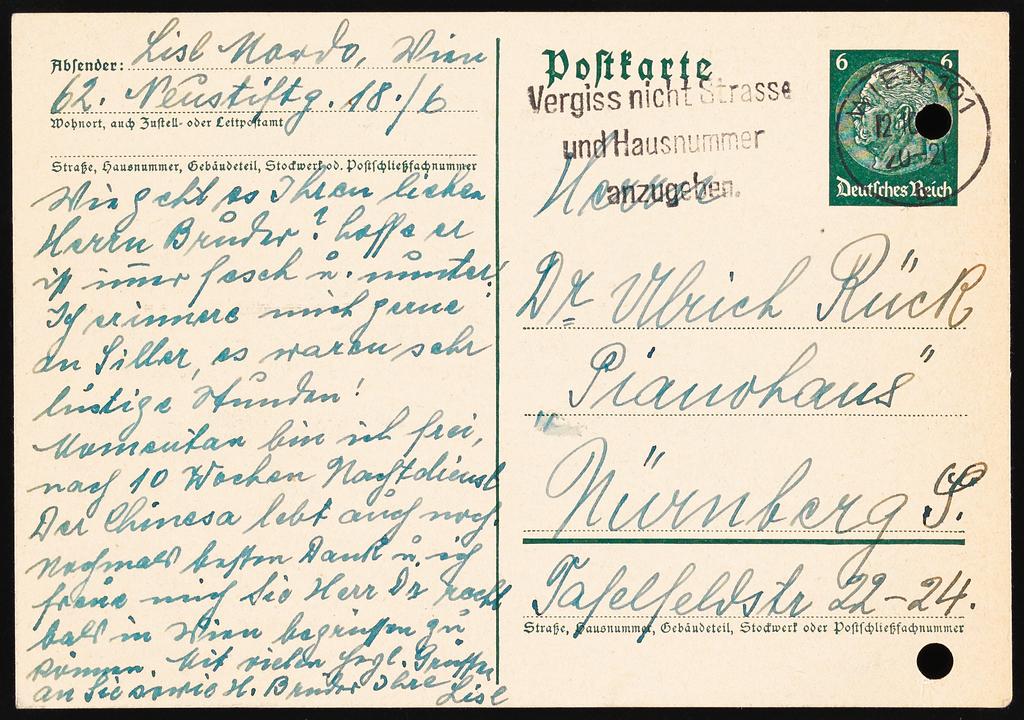 Absender: Lisl Mordo, Wien
62. Neustiftg. 18./6
Wohnort, auch Zustell- oder Leitpostamt
Straße, Hausnummer, Gebäudeteil, Stockwerk od. Postschließfachnummer
Wie geht es Ihren lieben
Herrn Bruder? hoffe er
ist immer fesch u. munter!
Ich erinnere mich gerne
an Siller, es waren sehr
lustige Stunden!
Momentan bin ich frei,
nach 10 Wochen Nachtdienst
Der Chinesa lebt auch noch.
Nochmals besten Dank u. ich
freue mich Sie Herr Dr recht
bald in Wien begrüßen zu
können. Mit vielen hrzl. Grüßen
an Sie sowie H. Bruder Ihre Lisl
Postkarte
Vergiss nicht Strasse
und Hausnummer
anzugeben.
6 6
Deutsches Reich
WIEN 101
12.
20-21
Herrn
Dr Ulrich Rück
"Pianohaus"
Nürnberg S.
Tafelfeldstr 22-24.
Straße, Hausnummer, Gebäudeteil, Stockwerk oder Postschließfachnummer